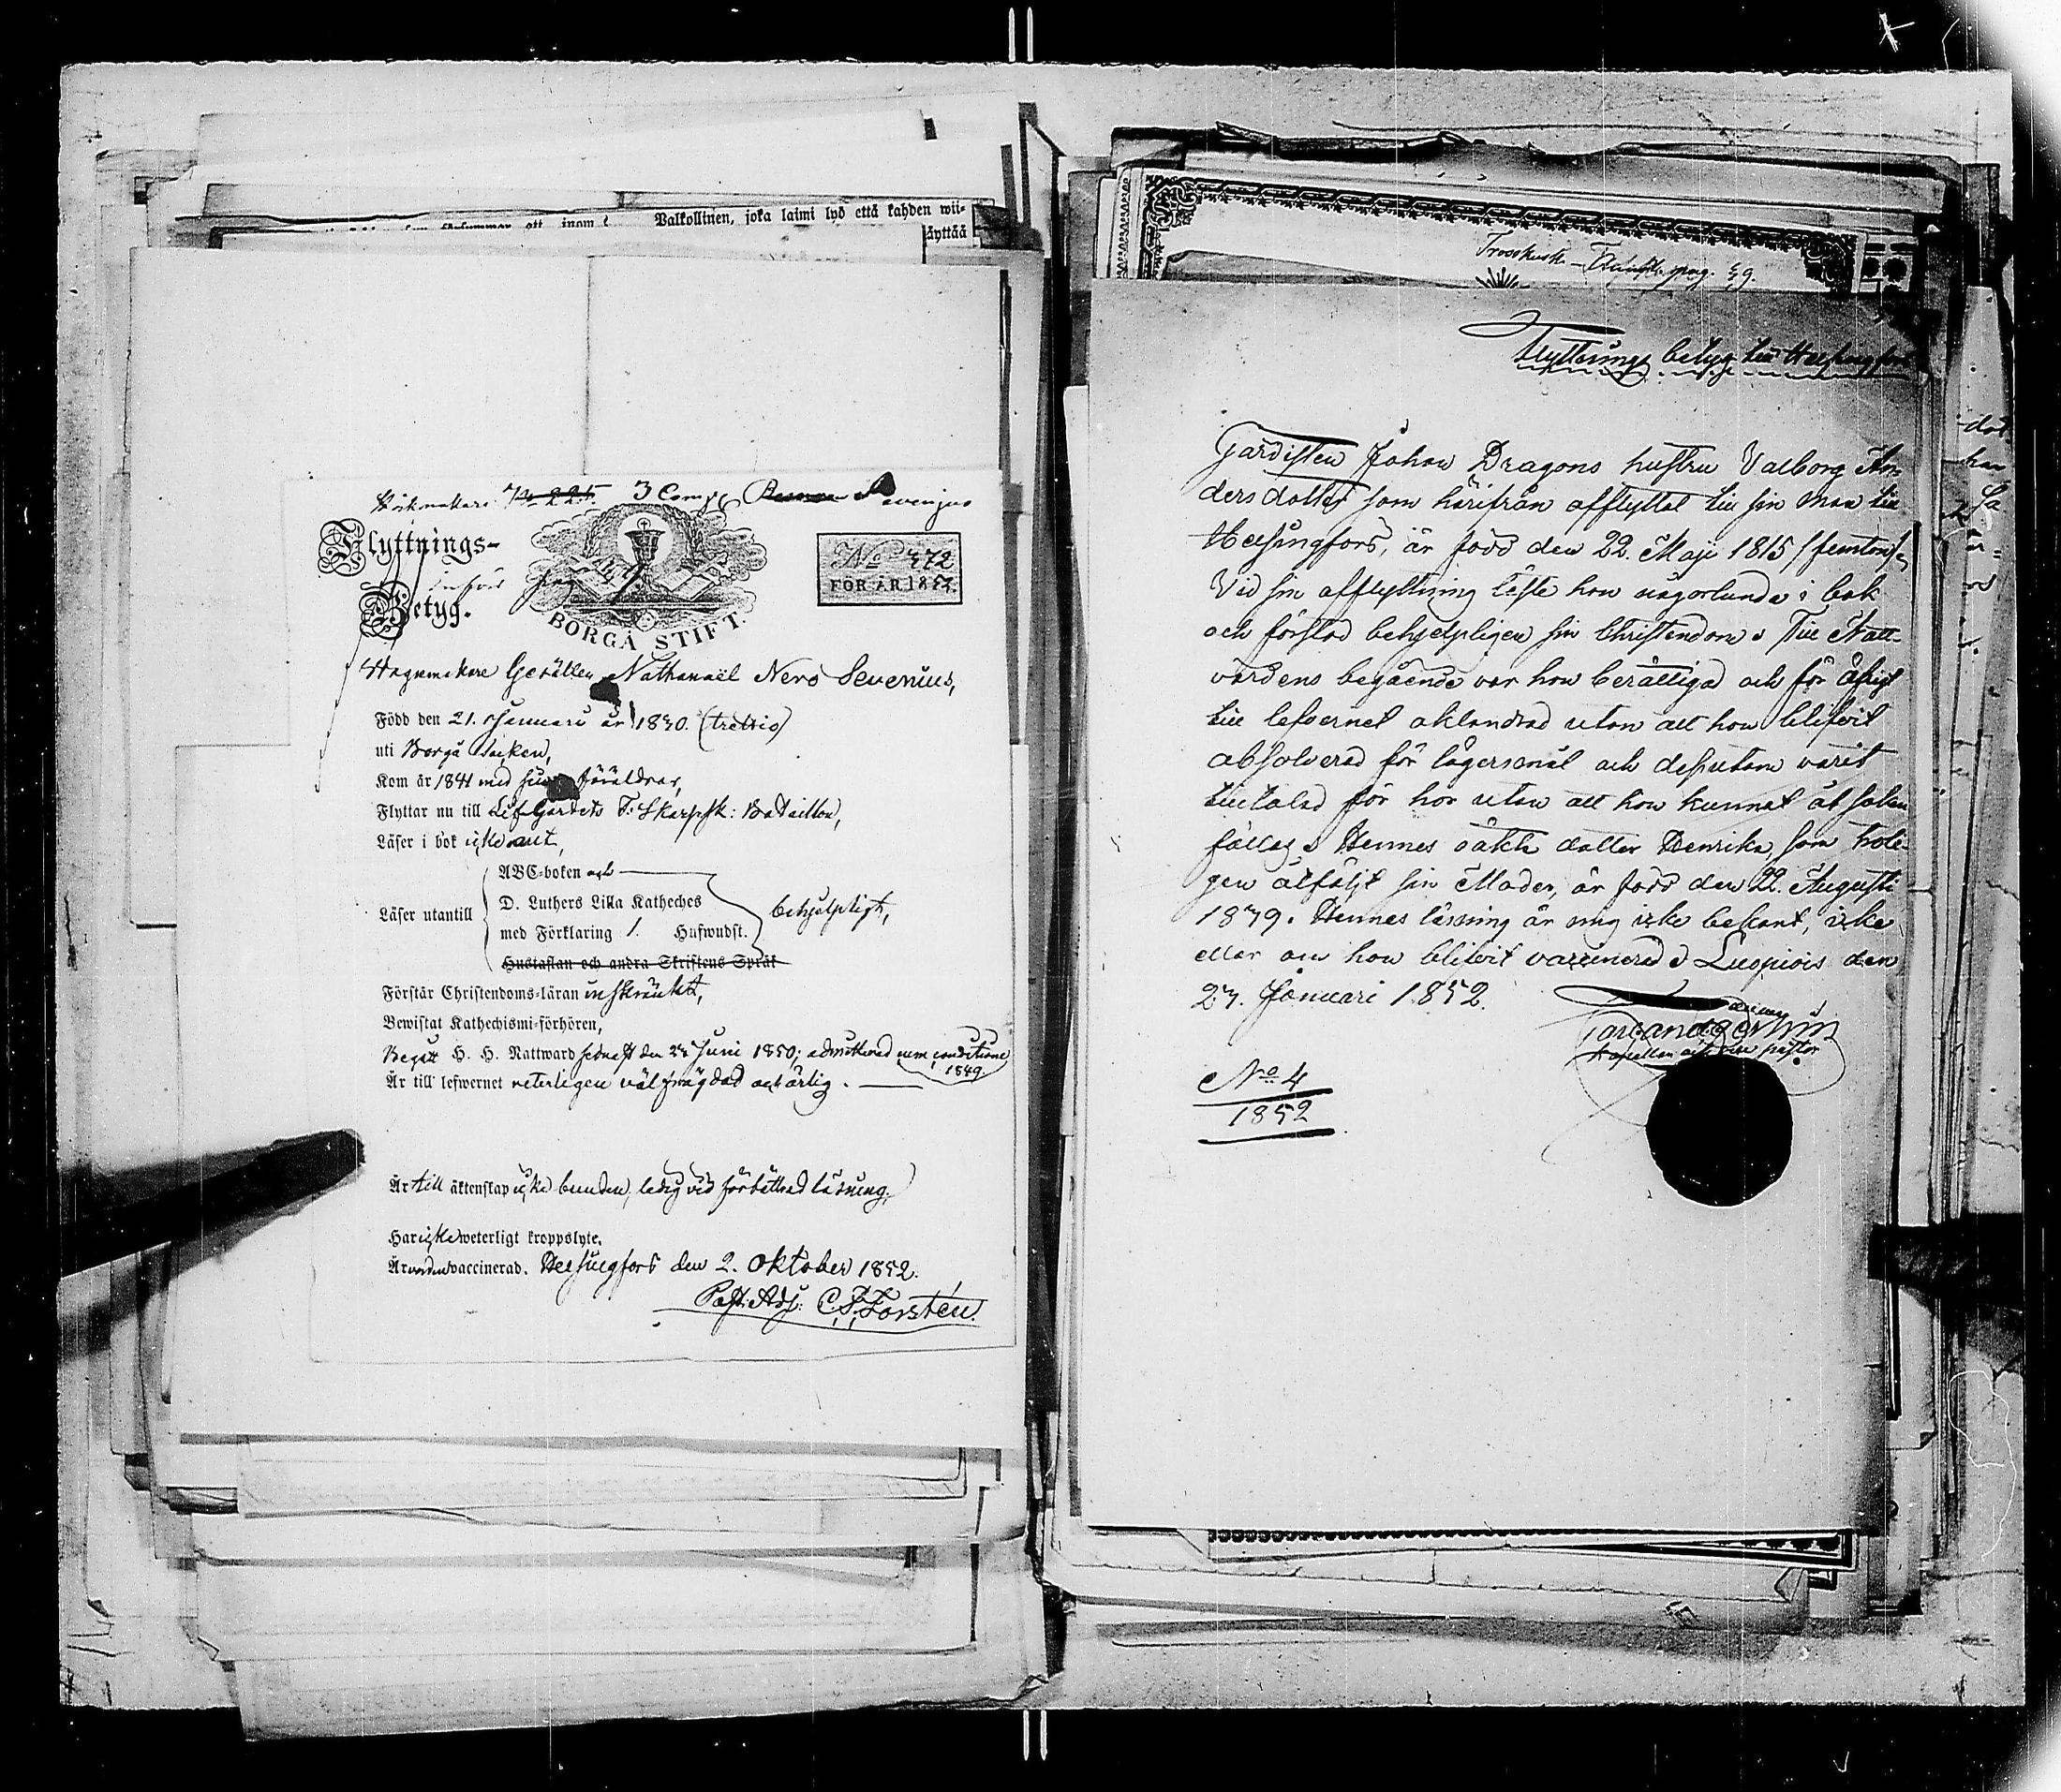 Valkollinen, joka laimi lyö että kahden wii-
äyttää
3 Comp
Flyttnings-
Betyg.
införd pag
BORGÅ STIFT.
No 472
FÖR ÅR 1852.
Gesällen Nathanaël Nero Sevenius,
Född den 21. Januari år 1830. (trettio)
uti Borgå socken,
Kom år 1841 med sina föräldrar,
Flyttar nu till Lif-Gardets F. Skarpsk: Bataillon,
Läser i bok icke ant,
Läser utantill
ABC-boken och
D. Luthers Lilla Katheches
med Förklaring 1. Hufwudst.
Hustaflan och andra Skriftens Språk
behjelpligt,
Förstår Christendoms-läran inskränkt,
Bewistat Kathechismi-förhören,
Begått H. H. Nattward sednast den Juni 1850; admitterad conditione
1849.
Är till lefwernet veterligen välfrägdad och ärlig.
Är till äktenskap icke bunden, ledig vid förbättrad läsning.
Har icke weterligt kroppslyte.
Är vaccinerad. Helsingfors den 2. Oktober 1852.
Past: Adj: C. F. Forstén.
Flyttnings betyg till Helsingfors
Gardisten Johan Dragons hustru Valborg An-
dersdotter som härifrån afflyttat till sin man till
Helsingfors, är född den 22. Maji 1815 /femton/.
Vid sin afflyttning läste hon någorlunda i bok
och förstod behjelpligen sin Christendom. Till Natt-
vardens begående var hon berättigad och för öfrigt
till lefvernet oklandrad utan att hon blifvit
absolverad för lägersmål och dessutom varit
tilltalad för hor utan att hon kunnat åt saken
fällas. Hennes oäkta dotter Henrika, som troli-
gen åtföljt sin Moder, är född den 22. Augusti
1839. Hennes läsning är mig icke bekant, icke
eller om hon blifvit vaccinerad. Luopiois den
27. Januari 1852.
Kapellan och vice pastor
No 4
1852